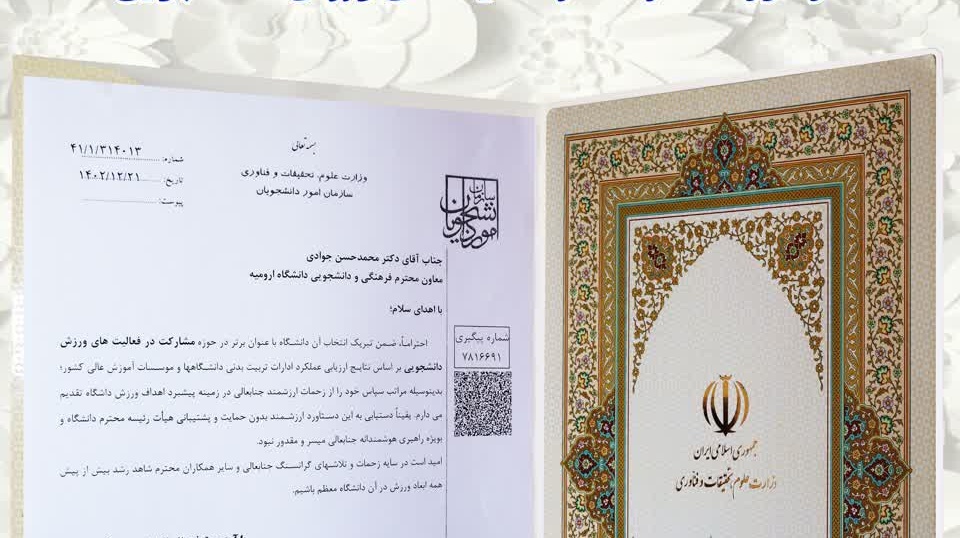 بسمه تعالی
وزارت علوم، تحقیقات و فناوری
سازمان امور دانشجویان
شماره: ۴۱/۱/۳۱۴۰۱۳
تاریخ: ۱۴۰۲/۱۲/۲۱
پیوست:
سازمان امور دانشجویان
جناب آقای دکتر محمدحسن جوادی
معاون محترم فرهنگی و دانشجویی دانشگاه ارومیه
با اهدای سلام؛
احتراماً، ضمن تبریک انتخاب آن دانشگاه با عنوان برتر در حوزه مشارکت در فعالیت های ورزش
دانشجویی بر اساس نتایج ارزیابی عملکرد ادارات تربیت بدنی دانشگاهها و موسسات آموزش عالی کشور؛
بدینوسیله مراتب سپاس خود را از زحمات ارزشمند جنابعالی در زمینه پیشبرد اهداف ورزش دانشگاه تقدیم
می دارم. یقیناً دستیابی به این دستاورد ارزشمند بدون حمایت و پشتیبانی هیأت رئیسه محترم دانشگاه و
بویژه راهبری هوشمندانه جنابعالی میسر و مقدور نبود.
امید است در سایه زحمات و تلاشهای گرانسنگ جنابعالی و سایر همکاران محترم شاهد رشد بیش از پیش
همه ابعاد ورزش در آن دانشگاه معظم باشیم.
شماره پیگیری
۷۸۱۶۶۹۱
جمهوری اسلامی ایران
وزارت علوم، تحقیقات و فناوری